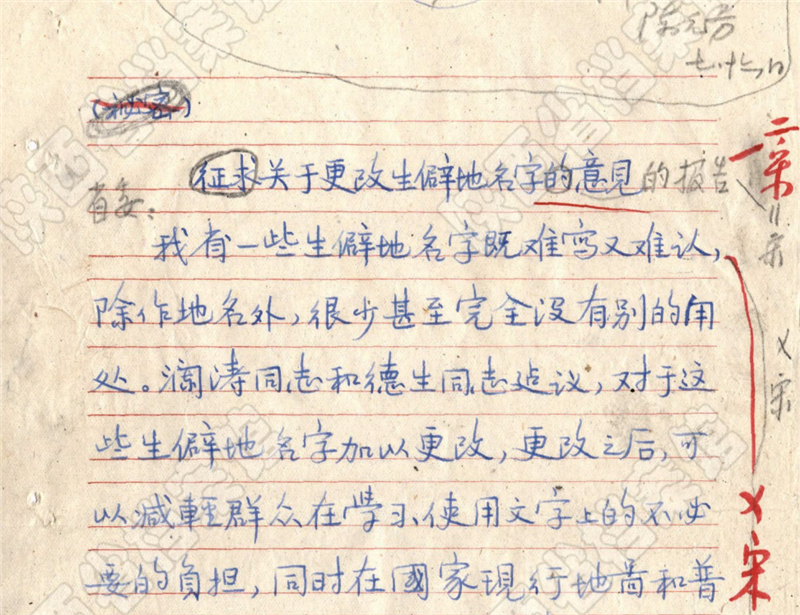 七.十六日
(秘密)
征求关于更改生僻地名字的意见的报告
省委：
我省一些生僻地名字既难写又难认，
除作地名外，很少甚至完全没有别的用
处。澜涛同志和德生同志建议，对于这
些生僻地名字加以更改，更改之后，可
以减輕群众在学习、使用文字上的不必
要的负担，同时在國家現行地啚和普
二宋
二宋
乂宋
乂宋
陕西省档案馆